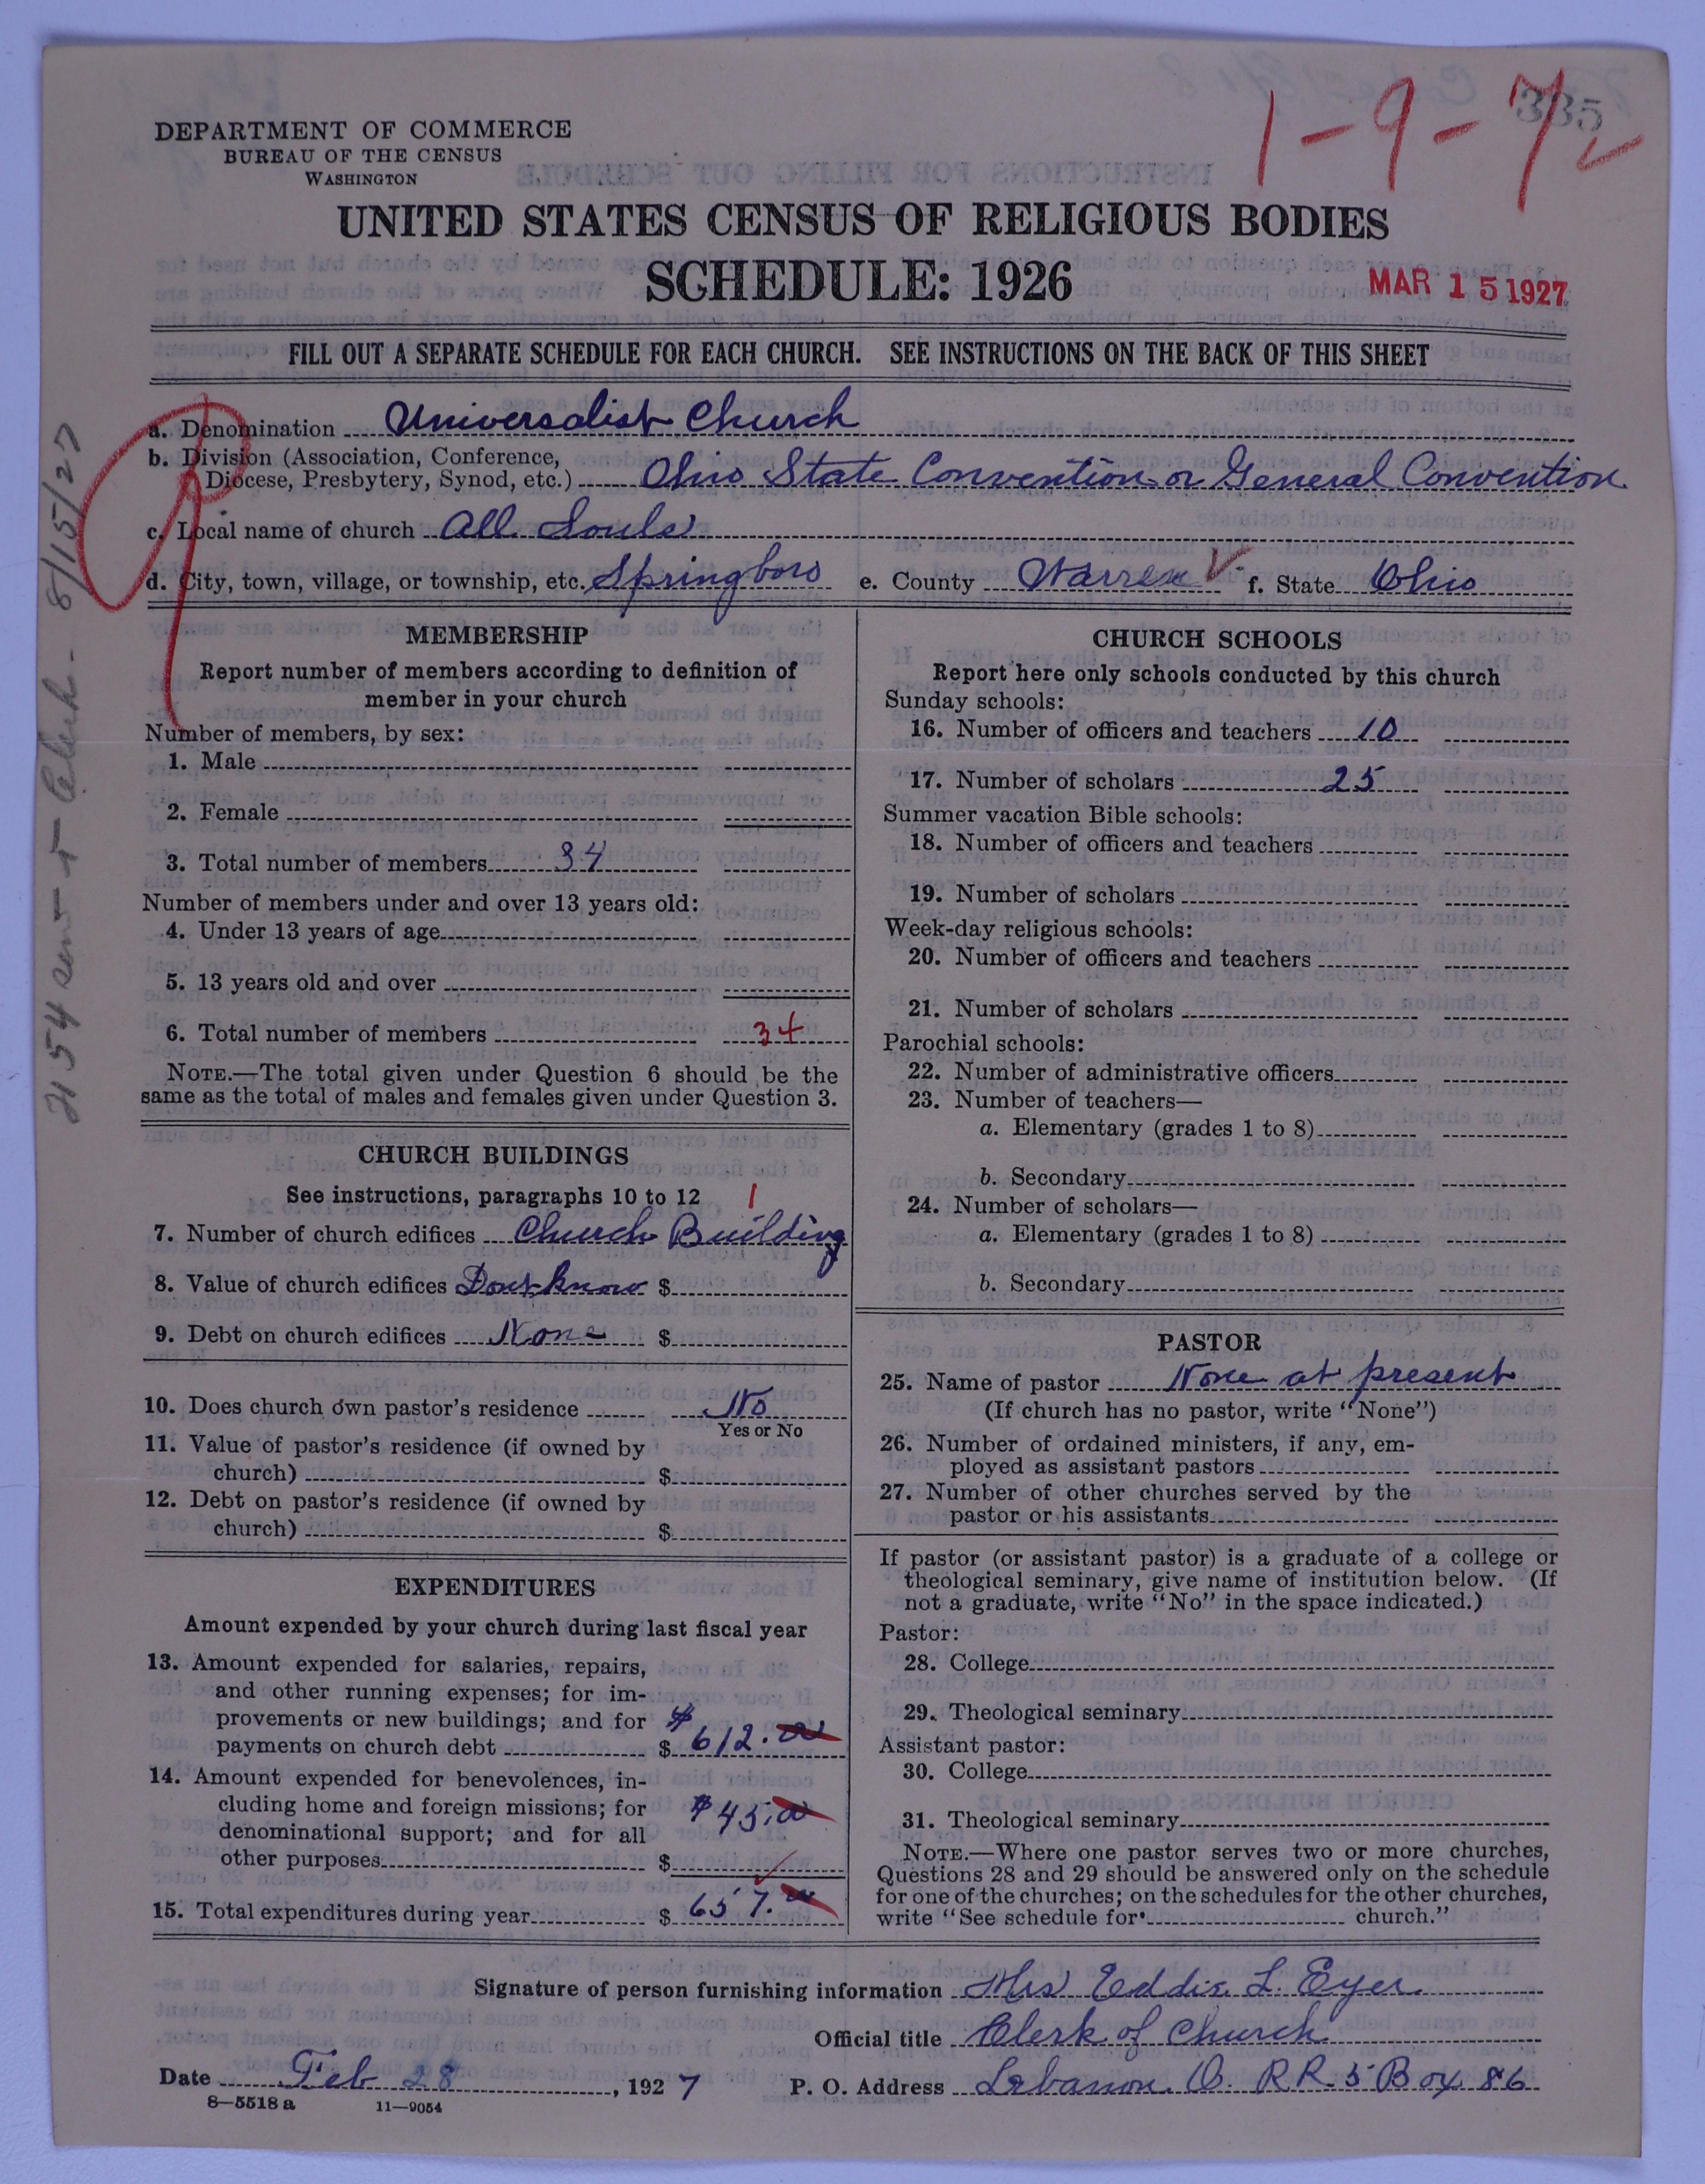 335
1-9-7
DEPARTMENT OF COMMERCE
BUREAU OF THE CENSUS
WASHINGTON
UNITED STATES CENSUS OF RELIGIOUS BODIES
SCHEDULE: 1926
MAR 15 1927
FILL OUT A SEPARATE SCHEDULE FOR EACH CHURCH. SEE INSTRUCTIONS ON THE BACK OF THIS SHEET
a. Denomination Universalist Church
b. Division (Association, Conference,
Diocese, Presbytery, Synod, etc.) Ohio State Convention or General Convention
c. Local name of church All Souls
d. City, town, village, or township, etc. Springboro e. County Warren f. State Ohio
MEMBERSHIP
Report number of members according to definition of
member in your church
Number of members, by sex:
1. Male
2. Female
3. Total number of members 34
Number of members under and over 13 years old:
4. Under 13 years of age
5. 13 years old and over
6. Total number of members 34
NOTE.—The total given under Question 6 should be the
same as the total of males and females given under Question 3.
CHURCH BUILDINGS
See instructions, paragraphs 10 to 12 1
7. Number of church edifices Church Building
8. Value of church edifices Dont know $
9. Debt on church edifices None $
10. Does church own pastor's residence No
Yes or No
11. Value of pastor's residence (if owned by
church) $
12. Debt on pastor's residence (if owned by
church) $
EXPENDITURES
Amount expended by your church during last fiscal year
13. Amount expended for salaries, repairs,
and other running expenses; for im-
provements or new buildings; and for $
payments on church debt $ 612.00
14. Amount expended for benevolences, in-
cluding home and foreign missions; for $45.00
denominational support; and for all
other purposes $
15. Total expenditures during year $ 657.00
CHURCH SCHOOLS
Report here only schools conducted by this church
Sunday schools:
16. Number of officers and teachers 10
17. Number of scholars 25
Summer vacation Bible schools:
18. Number of officers and teachers
19. Number of scholars
Week-day religious schools:
20. Number of officers and teachers
21. Number of scholars
Parochial schools:
22. Number of administrative officers
23. Number of teachers—
a. Elementary (grades 1 to 8)
b. Secondary
24. Number of scholars—
a. Elementary (grades 1 to 8)
b. Secondary
PASTOR
25. Name of pastor None at present
(If church has no pastor, write "None")
26. Number of ordained ministers, if any, em-
ployed as assistant pastors
27. Number of other churches served by the
pastor or his assistants
If pastor (or assistant pastor) is a graduate of a college or
theological seminary, give name of institution below. (If
not a graduate, write "No" in the space indicated.)
Pastor:
28. College
29. Theological seminary
Assistant pastor:
30. College
31. Theological seminary
NOTE.—Where one pastor serves two or more churches,
Questions 28 and 29 should be answered only on the schedule
for one of the churches; on the schedules for the other churches,
write "See schedule for church."
Signature of person furnishing information Mrs Eddie L. Eyer
Official title Clerk of Church
Date Feb 28, 1927 P. O. Address Lebanon O. RR. 5 Box 86
8—5518 a 11—9054
H 54 sent Clerk - 8/15/27